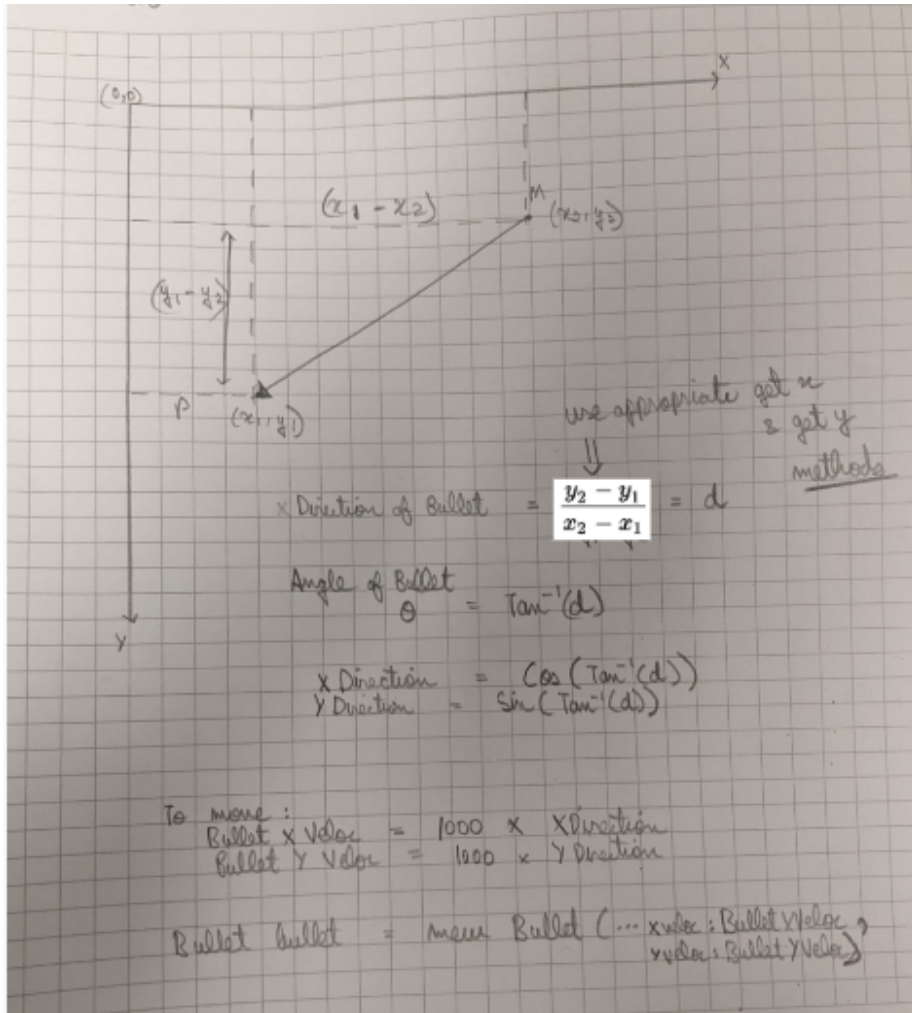 X
(0,0)
(x₁ - x₂)
M
(x₂, y₂)
(y₁ - y₂)
P
(x₁, y₁)
use appropriate get x
& get y
methods
⇓
x Direction of Bullet = \frac{y₂ - y₁}{x₂ - x₁} = d
Angle of Bullet
θ = Tan⁻¹(d)
Y
X Direction = Cos(Tan⁻¹(d))
Y Direction = Sin(Tan⁻¹(d))
To move:
Bullet X Veloc = 1000 × X Direction
Bullet Y Veloc = 1000 × Y Direction
Bullet bullet = new Bullet (... xveloc: BulletXVeloc,
yveloc: BulletYVeloc);